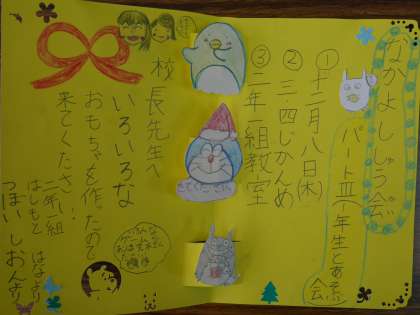 なかよししゅう会
パートⅢ 1年生とあそぶ会
①十二月八日(木)
②三・四じかんめ
③二年一組教室
きてくださいね
校長先生へ
いろいろな
おもちゃを作ったので
来てください!
二年一組
はしもと はなより
つぼい しおんより